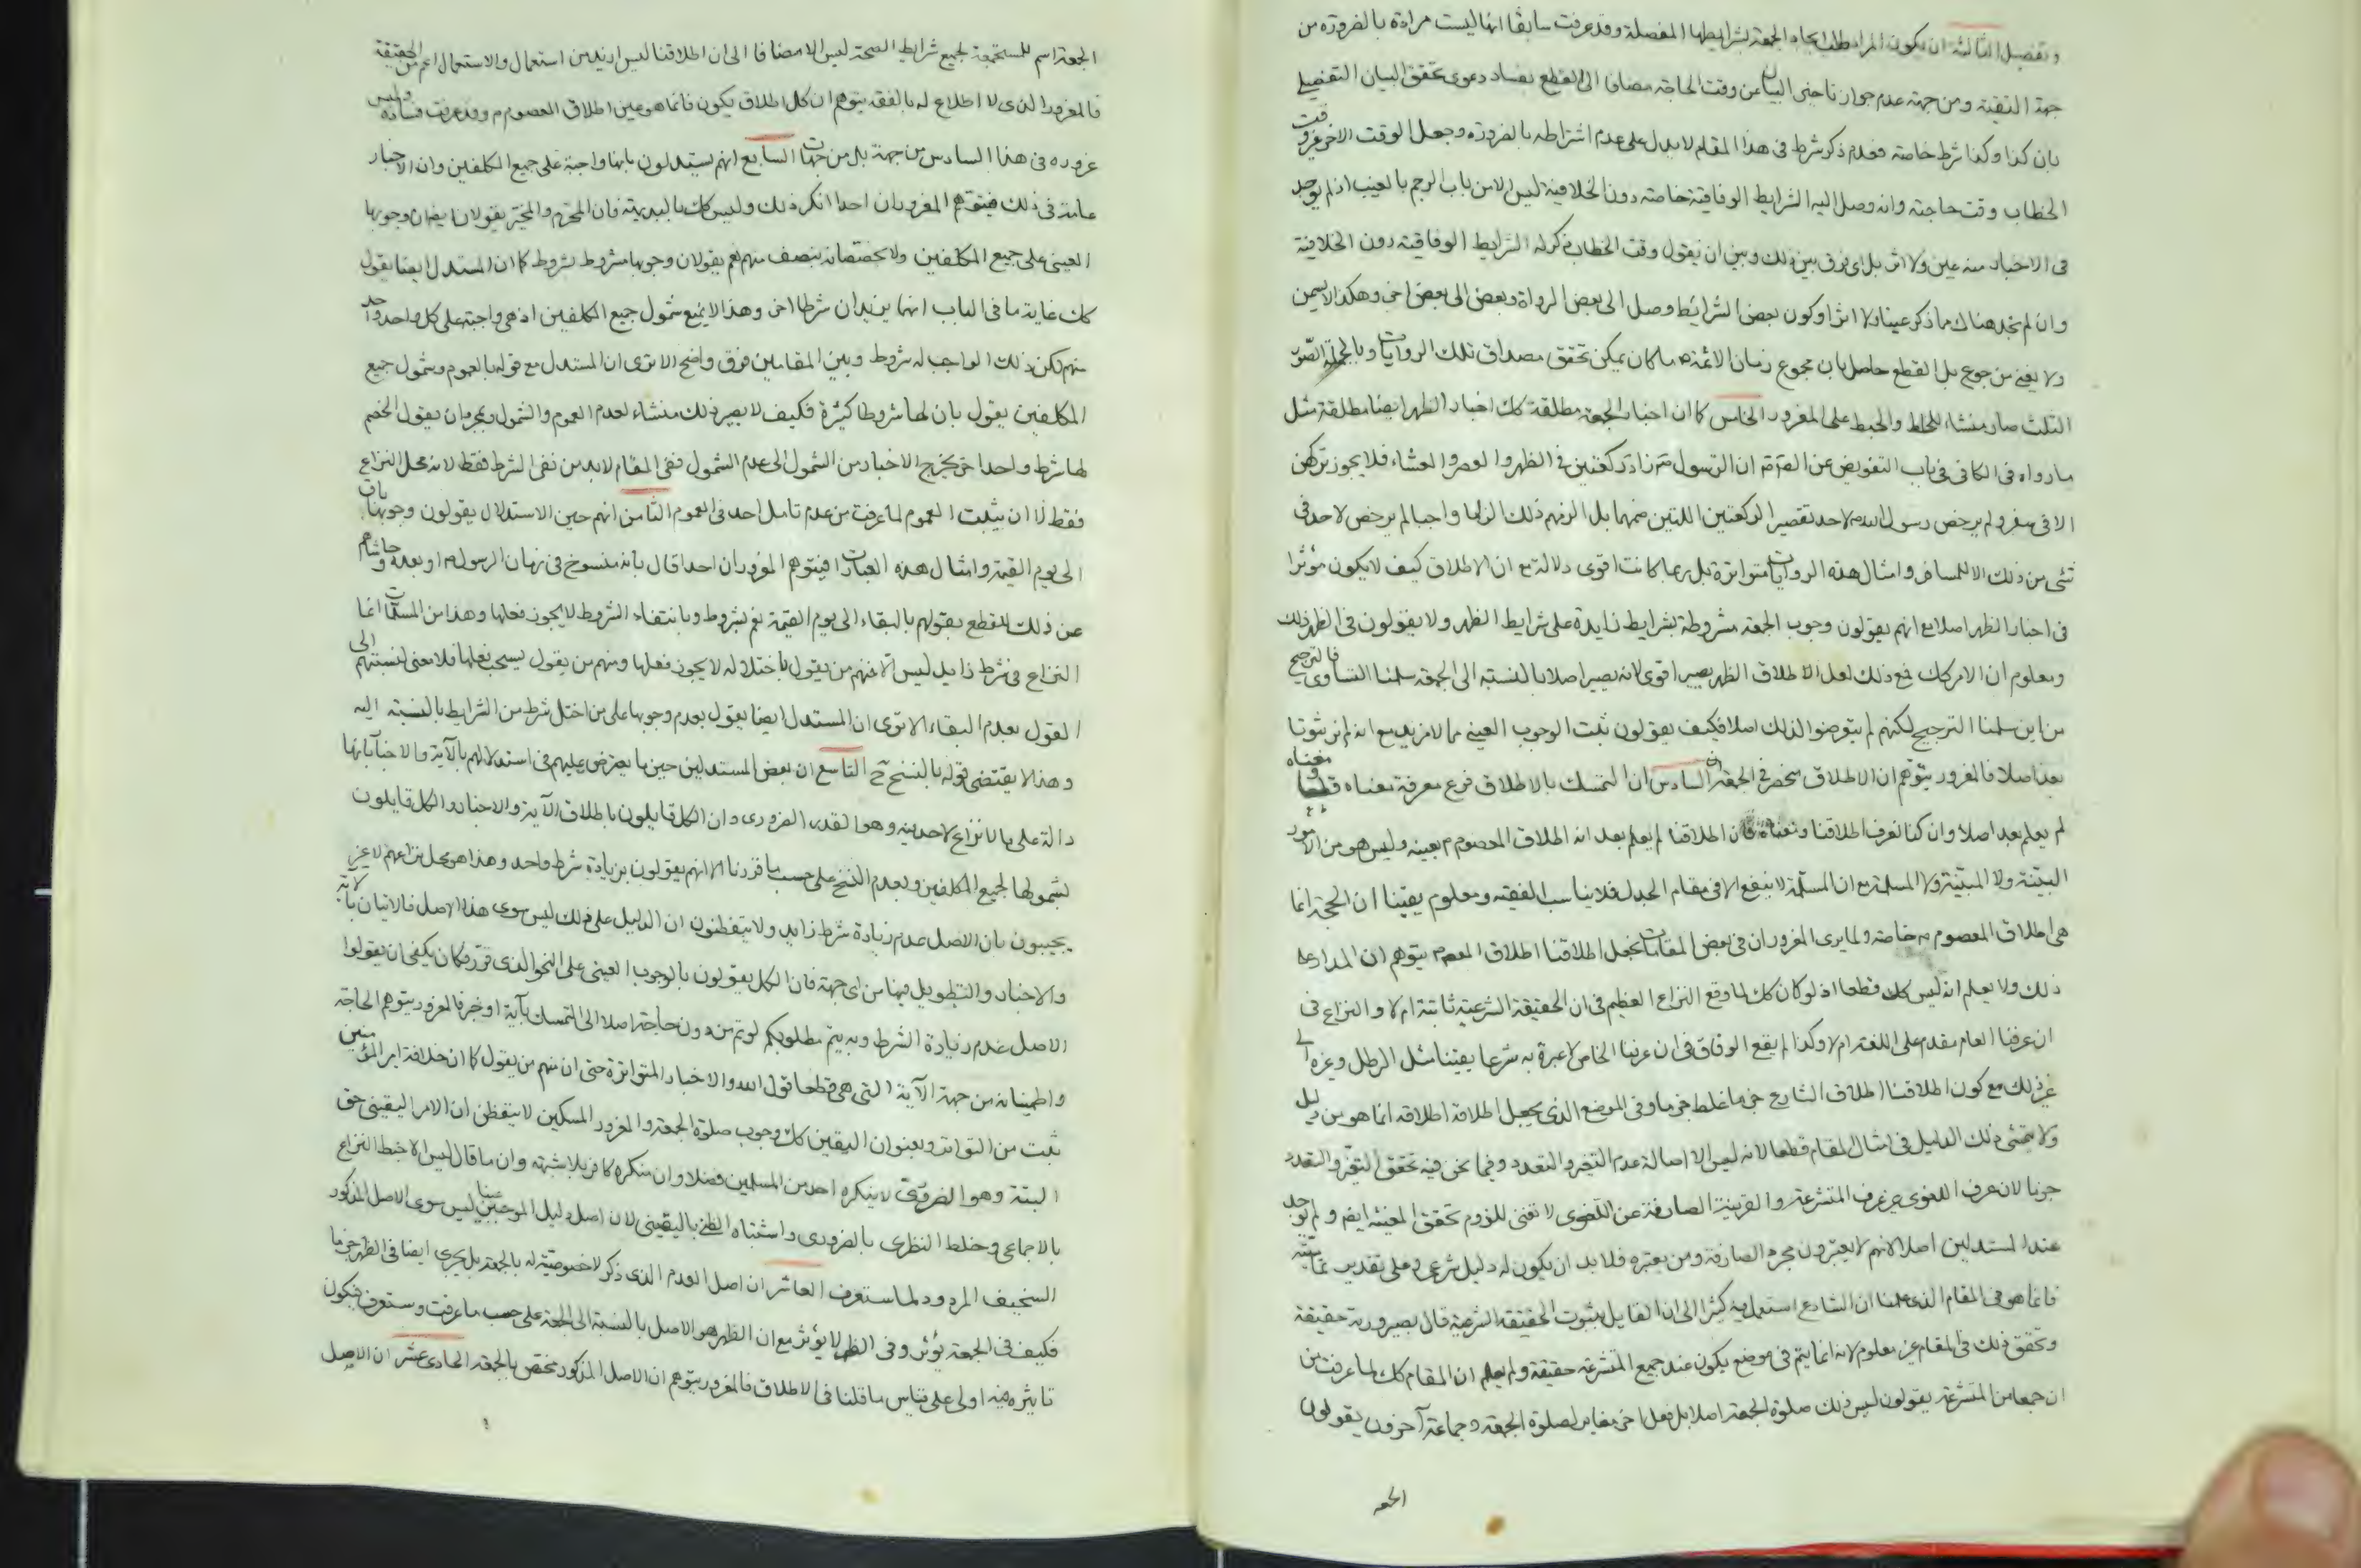 وتفصيل الثالثة ان يكون المراد طلب ايجاد الجمعة بشرايطها المفصلة وقد عرفت سابقا انها ليست مرادة بالضرورة من
جهة التقية ومن جهة عدم جواز تاخير البيان عن وقت الحاجة مضافا الى القطع بفساد دعوى تحقق البيان التفصيلي
بان كذا وكذا شرط خاصة فعدم ذكر شرط فى هذا المقام لا يدل على عدم اشتراطه بالضرورة وجعل الوقت الاخر غير وقت
الخطاب وقت حاجته وانه وصل اليه الشرايط الوفاقية خاصة دون الخلافية ليس الا من باب الرجم بالغيب اذ لم يوجد
فى الاخبار منه عين ولا اثر بل اى فرق بين ذلك وبين ان يقول وقت الخطاب ذكر له الشرايط الوفاقية دون الخلافية
وان لم نجد هناك ما ذكر عينا ولا اثرا وكون بعض الشرائط وصل الى بعض الرواة وبعض الى بعض اخر وهكذا لا يسمن
ولا يغنى من جوع بل القطع حاصل بان مجموع زمان الائمة ما كان يمكن تحقق مصداق تلك الروايات وبالجملة الصور
الثلث صار منشاء للخلط والخبط على المغرور الخامس كما ان اخبار الجمعة مطلقة كك اخبار الظهر ايضا مطلقة مثل
ما رواه فى الكافى فى باب التفويض عن الصادق ان الرسول ص زاد ركعتين فى الظهر والعصر والعشاء فلا يجوز تركهن
الا فى سفر ولم يرخص رسول الله ص لاحد تقصير الركعتين اللتين ضمهما بل الزمهم ذلك الزاما واجبا لم يرخص لاحد فى
شئ من ذلك الا للمسافر وامثال هذه الروايات متواترة بل ربما كانت اقوى دلالة مع ان الاطلاق كيف لا يكون مؤثرا
فى اخبار الظهر اصلا مع انهم يقولون وجوب الجمعة مشروطة بشرايط زايدة على شرايط الظهر ولا يقولون فى الظهر ذلك
ومعلوم ان الامر كك فمع ذلك لعل الاطلاق الظهر يصير اقوى لانه يصير اصلا بالنسبة الى الجمعة سلمنا التساوى فالترجيح
من اين سلمنا الترجيح لكنهم لم يتعرضوا لذلك اصلا فكيف يقولون ثبت الوجوب العينى بما لا مزيد مع انه لم نر ثبوتا
بعد اصلا فالمغرور يتوهم ان الاطلاق منحصر فى الجمعة السادس ان التمسك بالاطلاق فرع معرفة معناه
لم يعلم بعد اصلا وان كنا نعرف اطلاقنا ومعناه فان اطلاقنا لم يعلم بعد انه اطلاق المعصوم م بعينه وليس هو من الامور
البينة ولا المبينة ولا المسلمة مع ان المسلمة لا ينفع الا فى مقام الجدل فلا يناسب الفقيه ومعلوم يقينا ان الحجة انما
هى اطلاق المعصوم م خاصة ولما يرى المغرور ان فى بعض المقامات نجعل اطلاقنا اطلاق المعصوم يتوهم ان المدار على
ذلك ولا يعلم انه ليس كك قطعا اذ لو كان كك لما وقع النزاع العظيم فى ان الحقيقة الشرعية ثابتة ام لا والنزاع فى
ان عرفنا العام مقدم على اللغة ام لا وكذا لم يقع الوفاق فى ان عرفنا الخاص لا عبرة به شرعا يقينا مثل الرطل وغيره الى
غير ذلك مع كون اطلاقنا اطلاق الشارع جزما غلط جزما وفى الموضع الذى يجعل اطلاقة اطلاقه انما هو من دليل
ولا يتمشى ذلك الدليل فى امثال المقام قطعا لانه ليس الا اصالة عدم التغير والتعدد وفيما نحن فيه تحقق التغير والتعدد
جزما لان عرف اللغوى غير عرف المتشرعة والقرينة الصارفة عن اللغوى لا تغنى للزوم تحقق المعينة ايضا ولم توجد
عند المستدلين اصلا لانهم لا يعتبرون مجرد الصارفة ومن يعتبره فلا بد ان يكون له دليل شرعى وعلى تقدير تماميته
فانما هو فى المقام الذى علمنا ان الشارع استعمل فيه كثيرا الى ان القايل بثبوت الحقيقة الشرعية قال بصيرورته حقيقة
وتحقق ذلك فى المقام غير معلوم لانه انما يتم فى موضع يكون عند جميع المتشرعة حقيقة ولم يعلم ان المقام كك لما عرفت من
ان جمعا من المتشرعة يقولون ليس ذلك صلوة الجمعة اصلا بل فعل اخر مغاير لصلوة الجمعة وجماعة آخرون يقولون
الجمعة
الجمعة اسم للمستجمعة لجميع شرايط الصحة ليس الا مضافا الى ان اطلاقنا ليس ازيد من استعمال والاستعمال اعم من الحقيقة
فالمغرور الذى لا اطلاع له بالفقه يتوهم ان كل اطلاق يكون فانما هو عين اطلاق المعصوم م وقد عرفت فساده وليس
غروره فى هذا السادس من جهة بل من جهات السابع انهم يستدلون بانها واجبة على جميع المكلفين وان الاخبار
عامة فى ذلك فيتوهم المغرور ان احدا انكر ذلك وليس كك بالبديهة فان المحرم والمخير يقولان ايضا ان وجوبها
العينى على جميع المكلفين ولا يخصصانه بصنف منهم نعم يقولان وجوبها مشروط بشروط كما ان المستدل ايضا يقول
كك غاية ما فى الباب انهما يزيدان شرطا اخر وهذا لا يمنع شمول جميع المكلفين اذ هى واجبة على كل واحد واحد
منهم لكن ذلك الواجب له شروط وبين المقامين فرق واضح الا ترى ان المستدل مع قوله بالعموم وشمول جميع
المكلفين يقول بان لها شروطا كثيرة فكيف لا يصير ذلك منشاء لعدم العموم والشمول وبمجرد ان يقول الخصم
لها شرط واحد اخر يخرج الاخبار من الشمول الى عدم الشمول ففى المقام لا بد من نفى الشرط فقط لانه محل النزاع
فقط لا ان يثبت العموم لما عرفت من عدم تامل احد فى العموم الثامن انهم حين الاستدلال يقولون وجوبها باق
الى يوم القيمة وامثال هذه العبارات فيتوهم المغرور ان احدا قال بانه منسوخ فى زمان الرسول ص او بعده وحاشاهم
عن ذلك للقطع بقولهم بالبقاء الى يوم القيمة نعم بشروط وبانتفاء الشروط لا يجوز فعلها وهذا من المسلمات انما
النزاع فى شرط زايد ليس الا فمنهم من يقول باختلاله لا يجوز فعلها ومنهم من يقول يستحب فعلها فلا معنى لنسبتهم الى
القول بعدم البقاء الا ترى ان المستدل ايضا يقول بعدم وجوبها على من اختل شرط من الشرايط بالنسبة اليه
وهذا لا يقتضى قوله بالنسخ ح التاسع ان بعض المستدلين حين ما يعترض عليهم فى استدلالهم بالآية والاخبار بانها
دالة على ما لا نزاع لاحد فيه وهو القدر الضرورى وان الكل قايلون باطلاق الآية والاخبار والكل قايلون
بشمولها لجميع المكلفين وبعدم النسخ على حسب ما قررنا الا انهم يقولون بزيادة شرط واحد وهذا هو محل نزاعهم لا غير
يجيبون بان الاصل عدم زيادة شرط زايد ولا يتفطنون ان الدليل على ذلك ليس سوى هذا الاصل فالاتيان بالاية
والاخبار والتطويل فيها من اى جهة فان الكل يقولون بالوجوب العينى على النحو الذى قرر فكان يكفى ان يقولوا
الاصل عدم زيادة الشرط وبه يتم مطلوبكم لو تم من دون حاجة اصلا الى التمسك بآية او خبر فالمغرور يتوهم الحاجة
واطمينانه من جهة الآية التى هى قطعا قول الله والاخبار المتواترة حتى ان منهم من يقول كما ان خلافة امير المؤمنين
ثبت من التواتر وبعنوان اليقين كك وجوب صلوة الجمعة والمغرور المسكين لا يتفطن ان الامر اليقينى حق
البتة وهو الضرورى لا ينكره احد من المسلمين فضلا وان منكره كافر بلا شبهة وان ما قال ليس الا خبط النزاع
بالاجماعى وخلط النظرى بالضرورى واشتباه الظنى باليقينى لان اصل دليل الموجبين عينا ليس سوى الاصل المذكور
السخيف المردود لما ستعرف العاشر ان اصل العدم الذى ذكر لا خصوصية له بالجمعة بل يجرى ايضا فى الظهر جزما
فكيف فى الجمعة يؤثر وفى الظهر لا يؤثر مع ان الظهر هو الاصل بالنسبة الى الجمعة على حسب ما عرفت وستعرف فيكون
تاثيره فيه اولى على قياس ما قلنا فى الاطلاق فالمغرور يتوهم ان الاصل المذكور مختص بالجمعة الحادى عشر ان الاصل